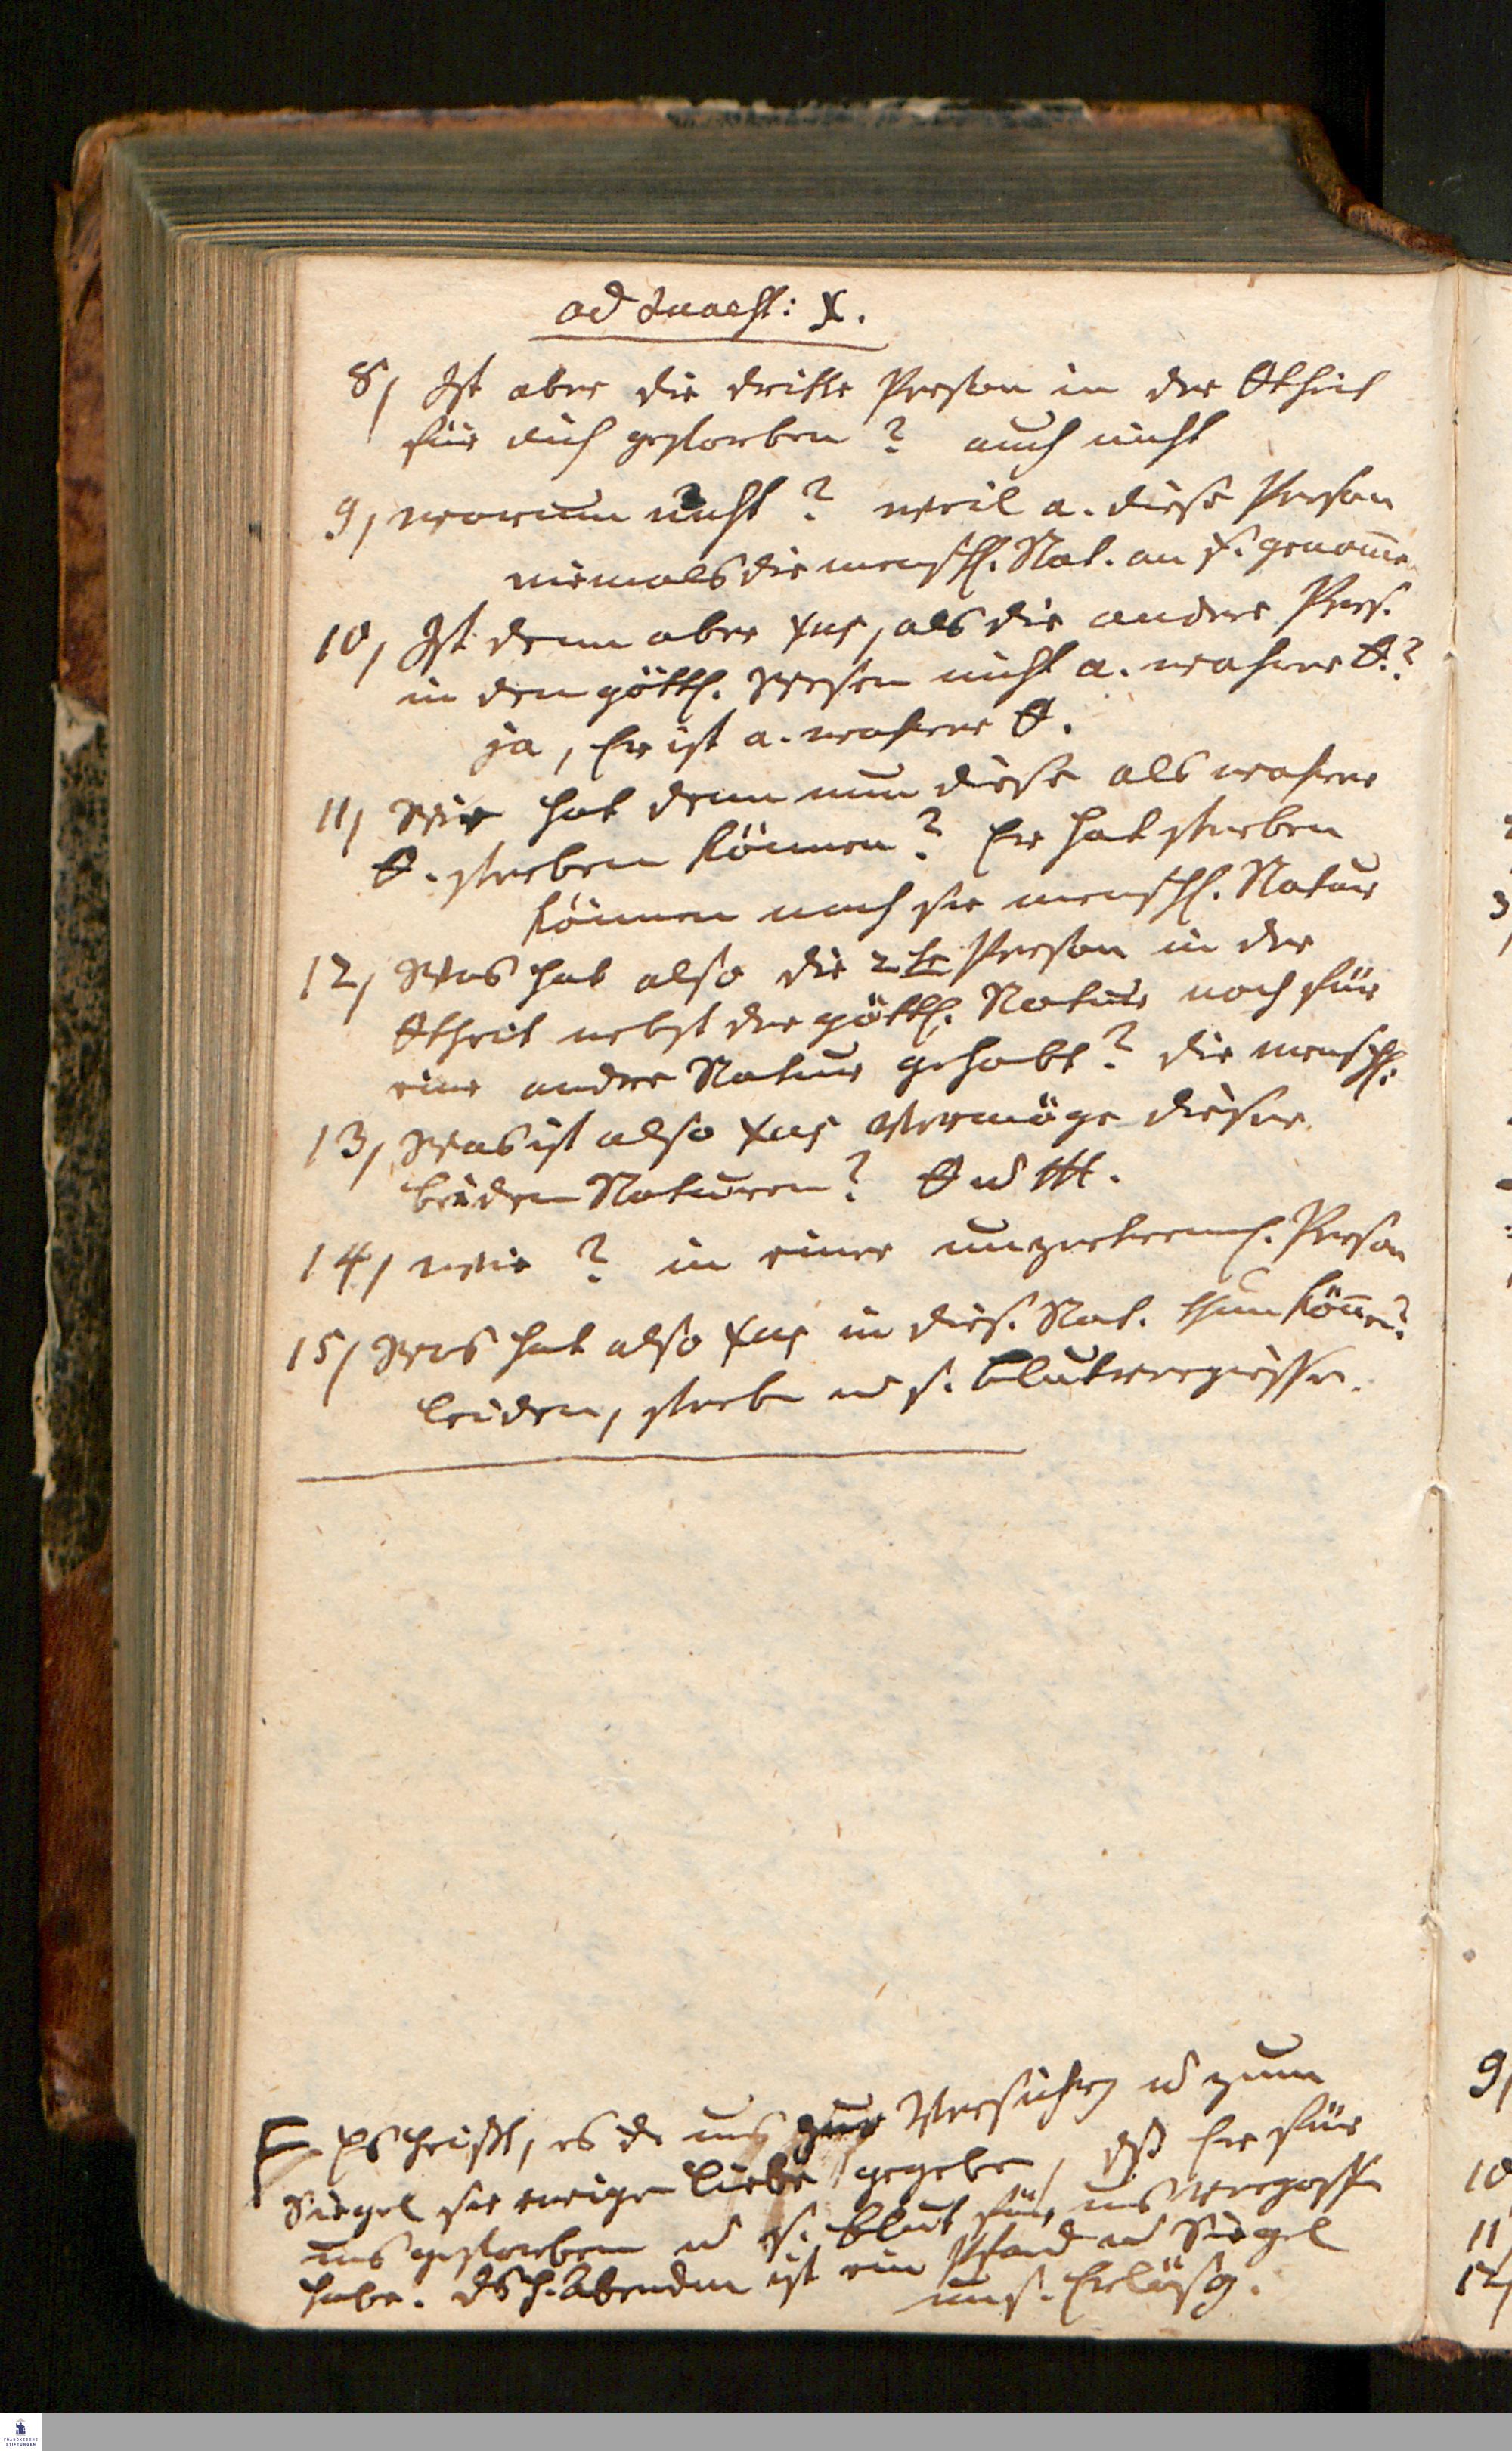 ad Quaest: X.
8, Ist aber die dritte Person in der Gtheit
für dich gestorben? auch nicht
9, warum nicht? weil a. diese Person
niemals die menschl. Nat. an s. genom̄en
10, Ist denn aber Xus, als die andere Pers.
in dem göttl. Wesen nicht a. wahrer G.?
ja, Er ist a. wahrer G.
11, Wie hat denn nun diese als wahrer
G. sterben können? Er hat sterben
können nach sr menschl. Natur
12, Was hat also die 2te Person in der
Gtheit nebst der göttl. Natur noch für
eine andre Natur gehabt? die menschl.
13, Was ist also Xus Vermöge dieser
beiden Naturen? G u M.
14, wie? in einer unzertrennl. Person
15, Was hat also Xus in dies. Nat. thun kön̄en?
leiden, sterben u s. blutvergiessen.
Es heißt, es sey uns zur Versichrg u zum
Siegel sr ewigen Liebe gegeben, dß Er für
uns gestorben u s. Blut für uns vergossen
habe. ds h. Abendm ist ein Pfand u Siegel
uns. Erlösg.
3
9,
10
11
12,
FRANCKESCHE
STIFTUNGEN